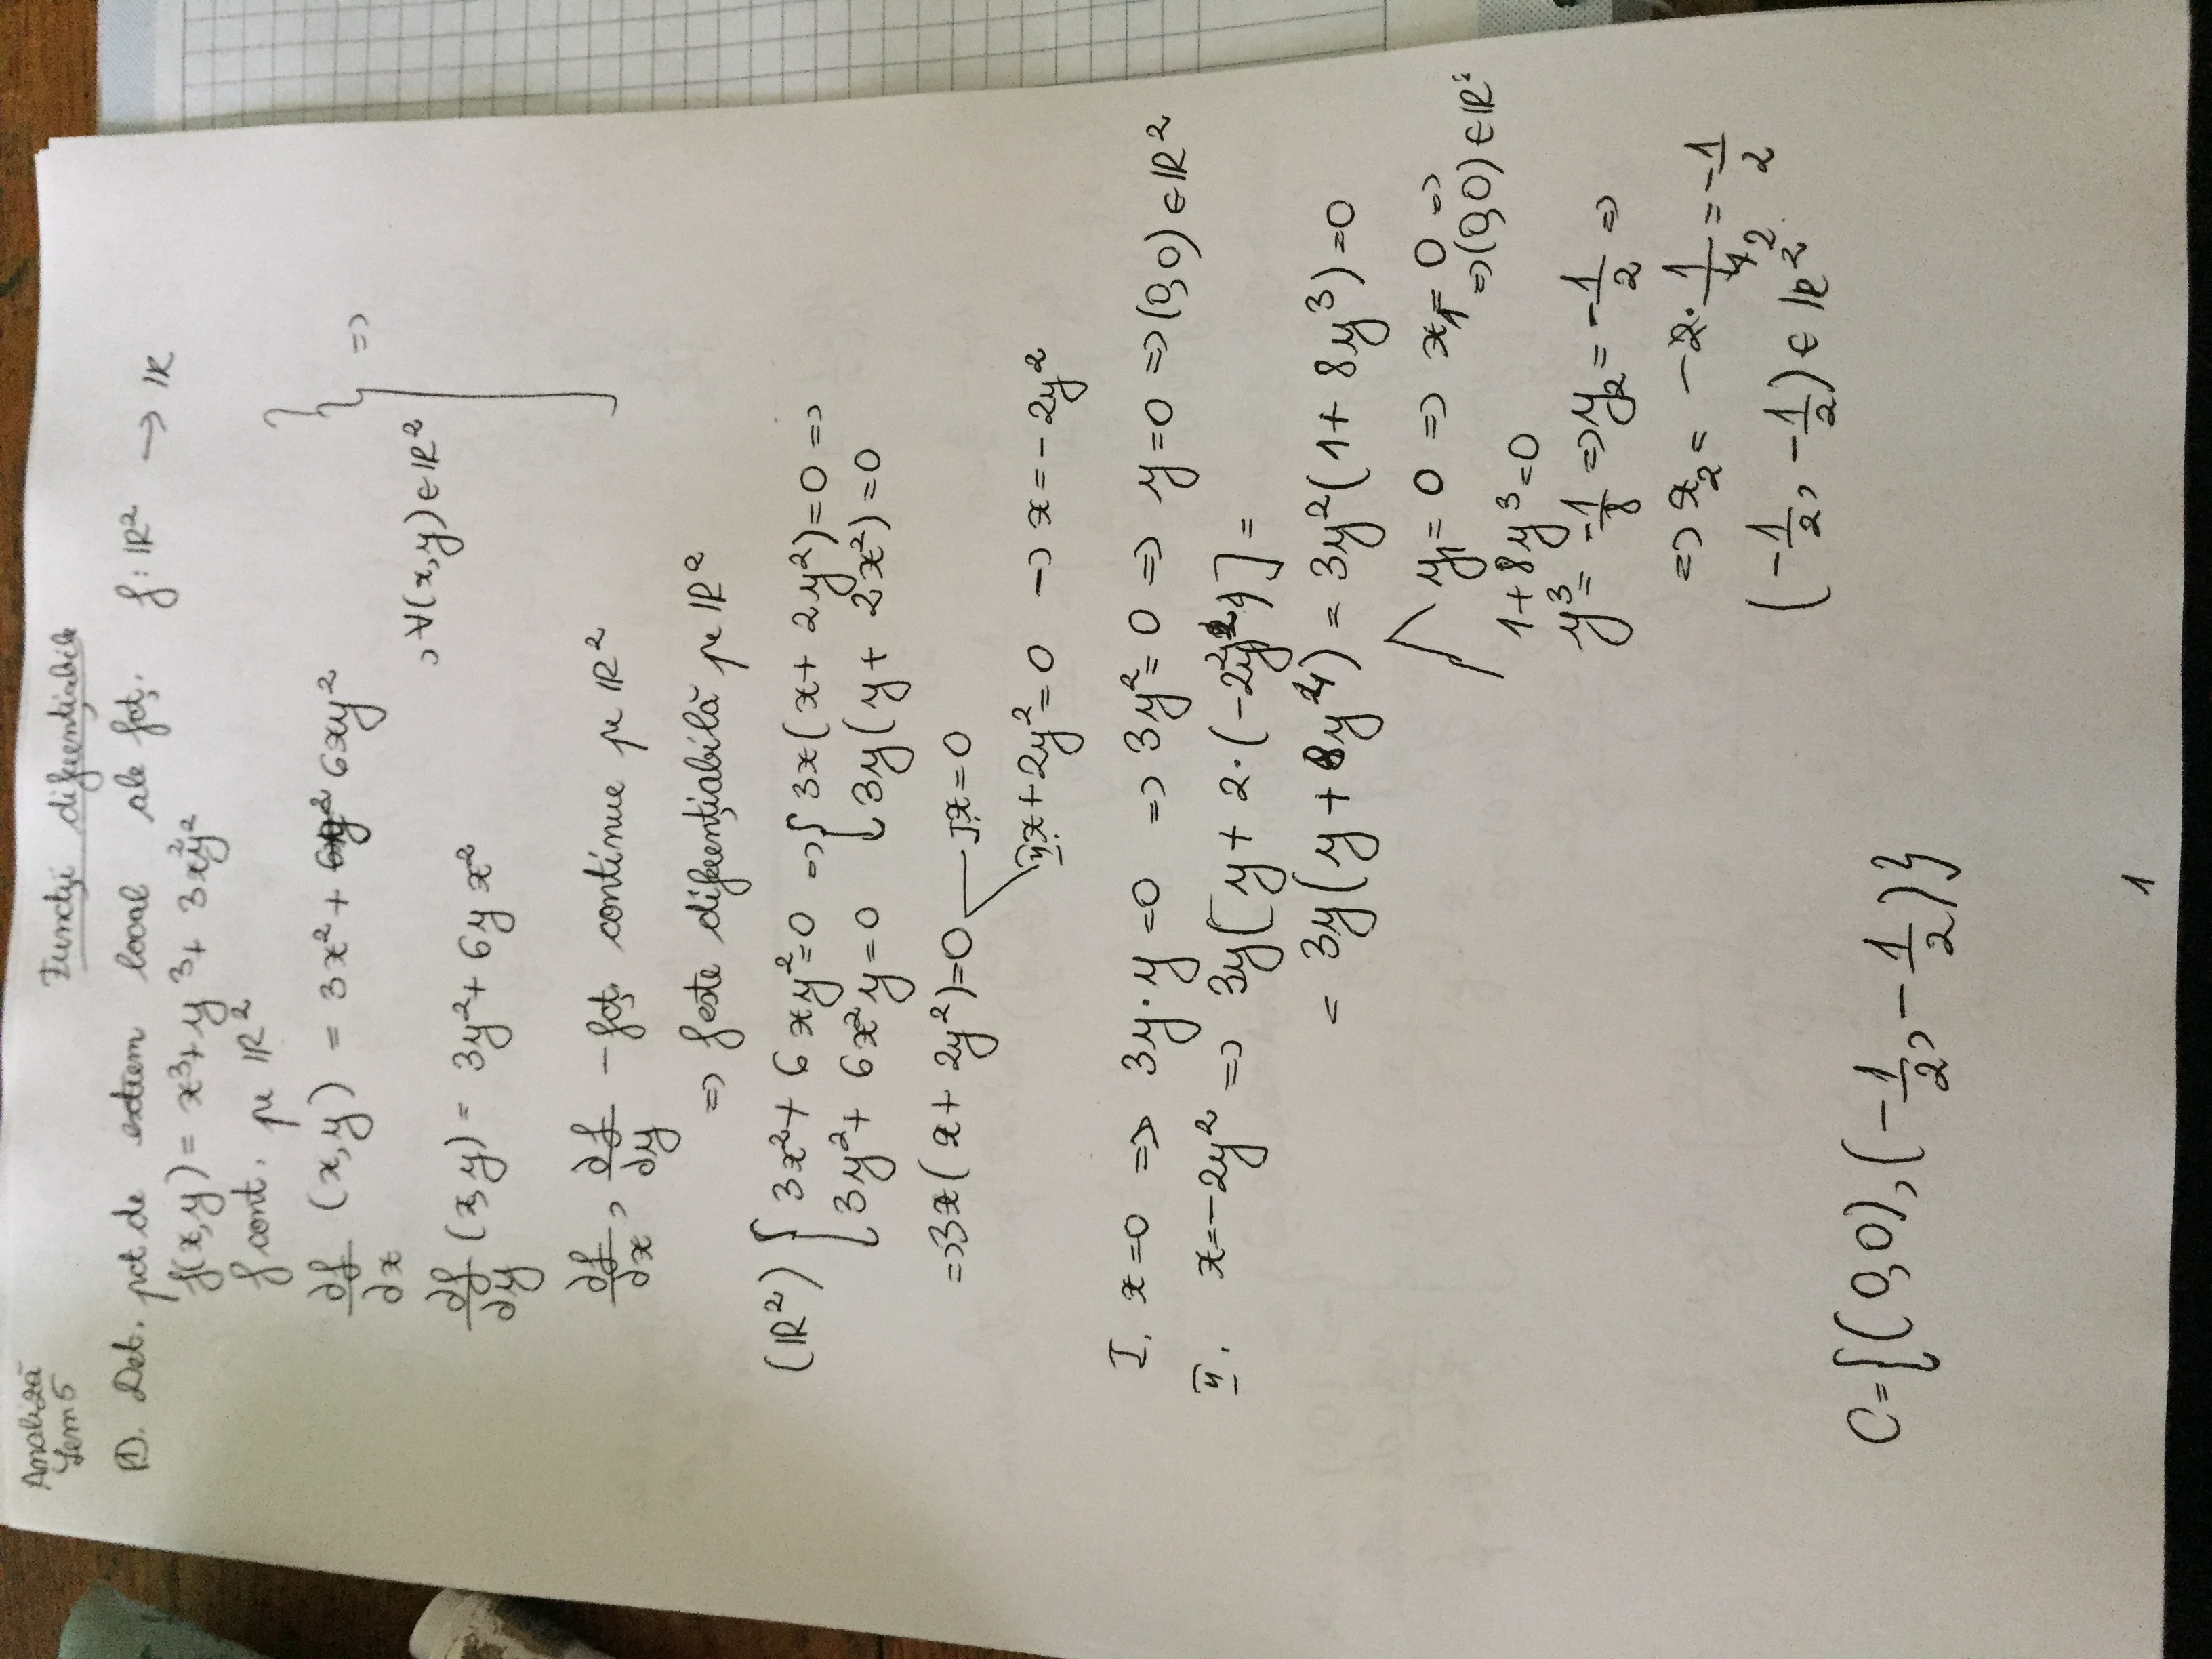 Analiză
Sem 5
Funcții diferențiabile
P1. Det. pct de extrem local ale fcț. f: ℝ² → ℝ
f(x,y) = x³ + y³ + 3x²y²
f cont. pe ℝ²
∂f/∂x (x,y) = 3x² + 6xy²
, ∀(x,y) ∈ ℝ² } =>
∂f/∂y (x,y) = 3y² + 6y x²
∂f/∂x, ∂f/∂y – fcț. continue pe ℝ²
=> f este diferențiabilă pe ℝ²
(ℝ²) { 3x² + 6xy² = 0 => { 3x(x + 2y²) = 0 =>
3y² + 6x²y = 0 3y(y + 2x²) = 0
=> 3x(x + 2y²) = 0 — I. x = 0
II. x + 2y² = 0 → x = -2y²
I. x = 0 => 3y·y = 0 => 3y² = 0 => y = 0 => (0,0) ∈ ℝ²
II. x = -2y² => 3y[y + 2·(-2y²)²] =
= 3y(y + 8y⁴) = 3y²(1 + 8y³) = 0
y₁ = 0 => x₁ = 0 =>
=> (0,0) ∈ ℝ²
1 + 8y³ = 0
y³ = -1/8 => y₂ = -1/2 =>
=> x₂ = -2 · 1/4 2 = -1/2
(-1/2, -1/2) ∈ ℝ²
C = {(0,0), (-1/2, -1/2)}
1